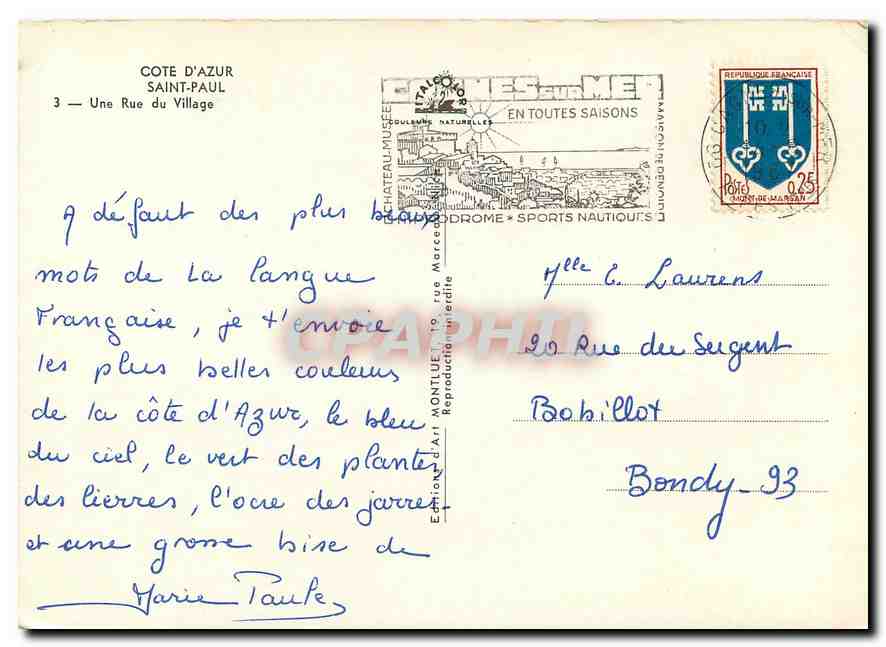 COTE D'AZUR
SAINT-PAUL
3 — Une Rue du Village
A défaut des plus beaux
mots de la langue
Française, je t'envoie
les plus belles couleurs
de la côte d'Azur, le bleu
du ciel, le vert des plantes,
des lierres, l'ocre des jarres
et une grosse bise de
Marie Paule
Editions d'Art MONTLUET, 19, rue Marceau
Reproduction interdite
ITALCOLOR
COULEURS NATURELLES
CAGNES SUR MER
EN TOUTES SAISONS
CHATEAU-MUSÉE
MAISON DE RENOIR
HIPPODROME * SPORTS NAUTIQUES
REPUBLIQUE FRANÇAISE
POSTES 0,25
MONT-DE-MARSAN
Mlle E. Laurens
20 Rue du Sergent
Bobillot
Bondy - 93
CPAPHIL